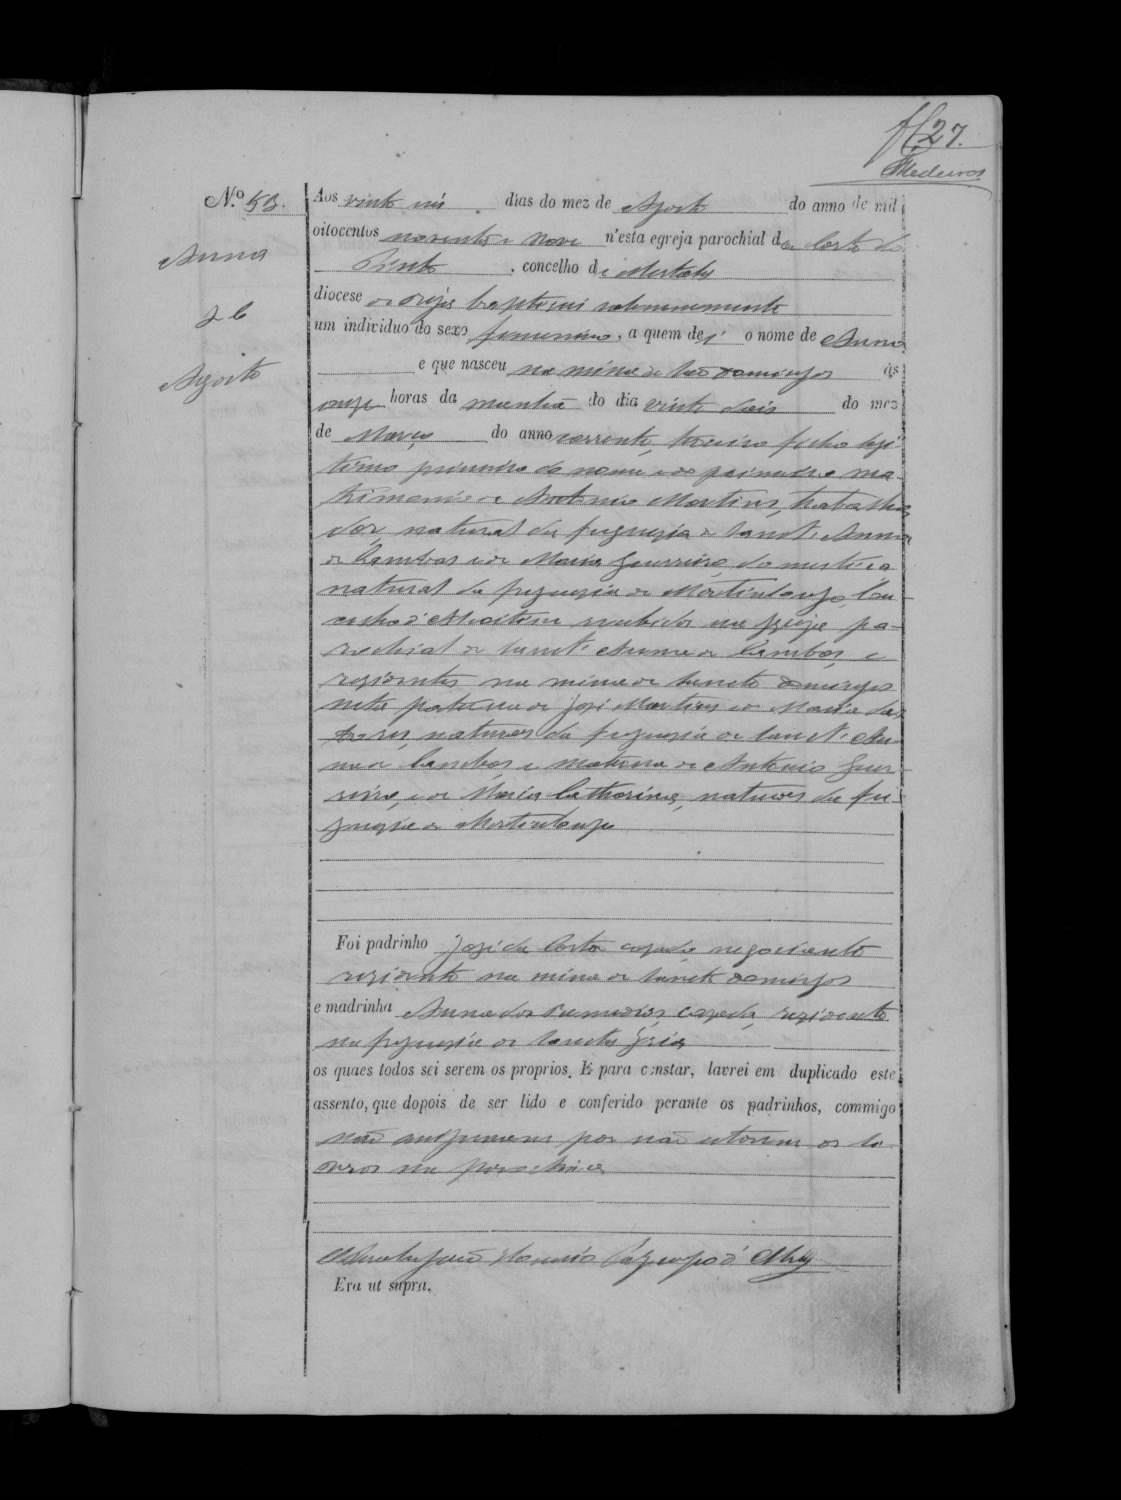 fl 27.
Medeiros
N.º 53.
Anna
26
Agosto
Aos vinte seis dias do mez de Agosto do anno de mil
oitocentos noventa e nove n'esta egreja parochial da Corte do
Pinto, concelho de Mertola
diocese de Beja baptisei solemnemente
um individuo do sexo femenino, a quem dei o nome de Anna
e que nasceu na mina de São Domingos ás
onze horas da manhã do dia vinte dois do mez
de Março do anno corrente, terceiro filho legi-
timo primeiro do nome e do primeiro ma-
trimonio de Antonio Martins, trabalha
dor, natural da freguezia de Sant' Anna
de Cambas e de Maria Guerreiro, domestica
natural da freguezia de Martinlongo, Con-
celho d'Alcoitim recebidos na Igreja pa-
rochial de Sant' Anna de Cambas, e
rezidentes na mina de Sancto Domingos
neta paterna de José Martins e de Maria das
Dores, naturaes da freguezia de Sant' An-
na de Cambas e materna de Antonio Guer-
reiro, e de Maria Catharina, naturaes da fre-
guezia de Martinlongo
Foi padrinho José da Costa cazado, negociante
rezidente na mina de Sancto Domingos
e madrinha Anna dos Remedios, cazada, rezidente
na freguezia de Sancta Iria
os quaes todos sei serem os proprios. E para constar, lavrei em duplicado este
assento, que depois de ser lido e conferido perante os padrinhos, commigo
não assignaram por não estarem os li
vros na parochia
Era ut supra.